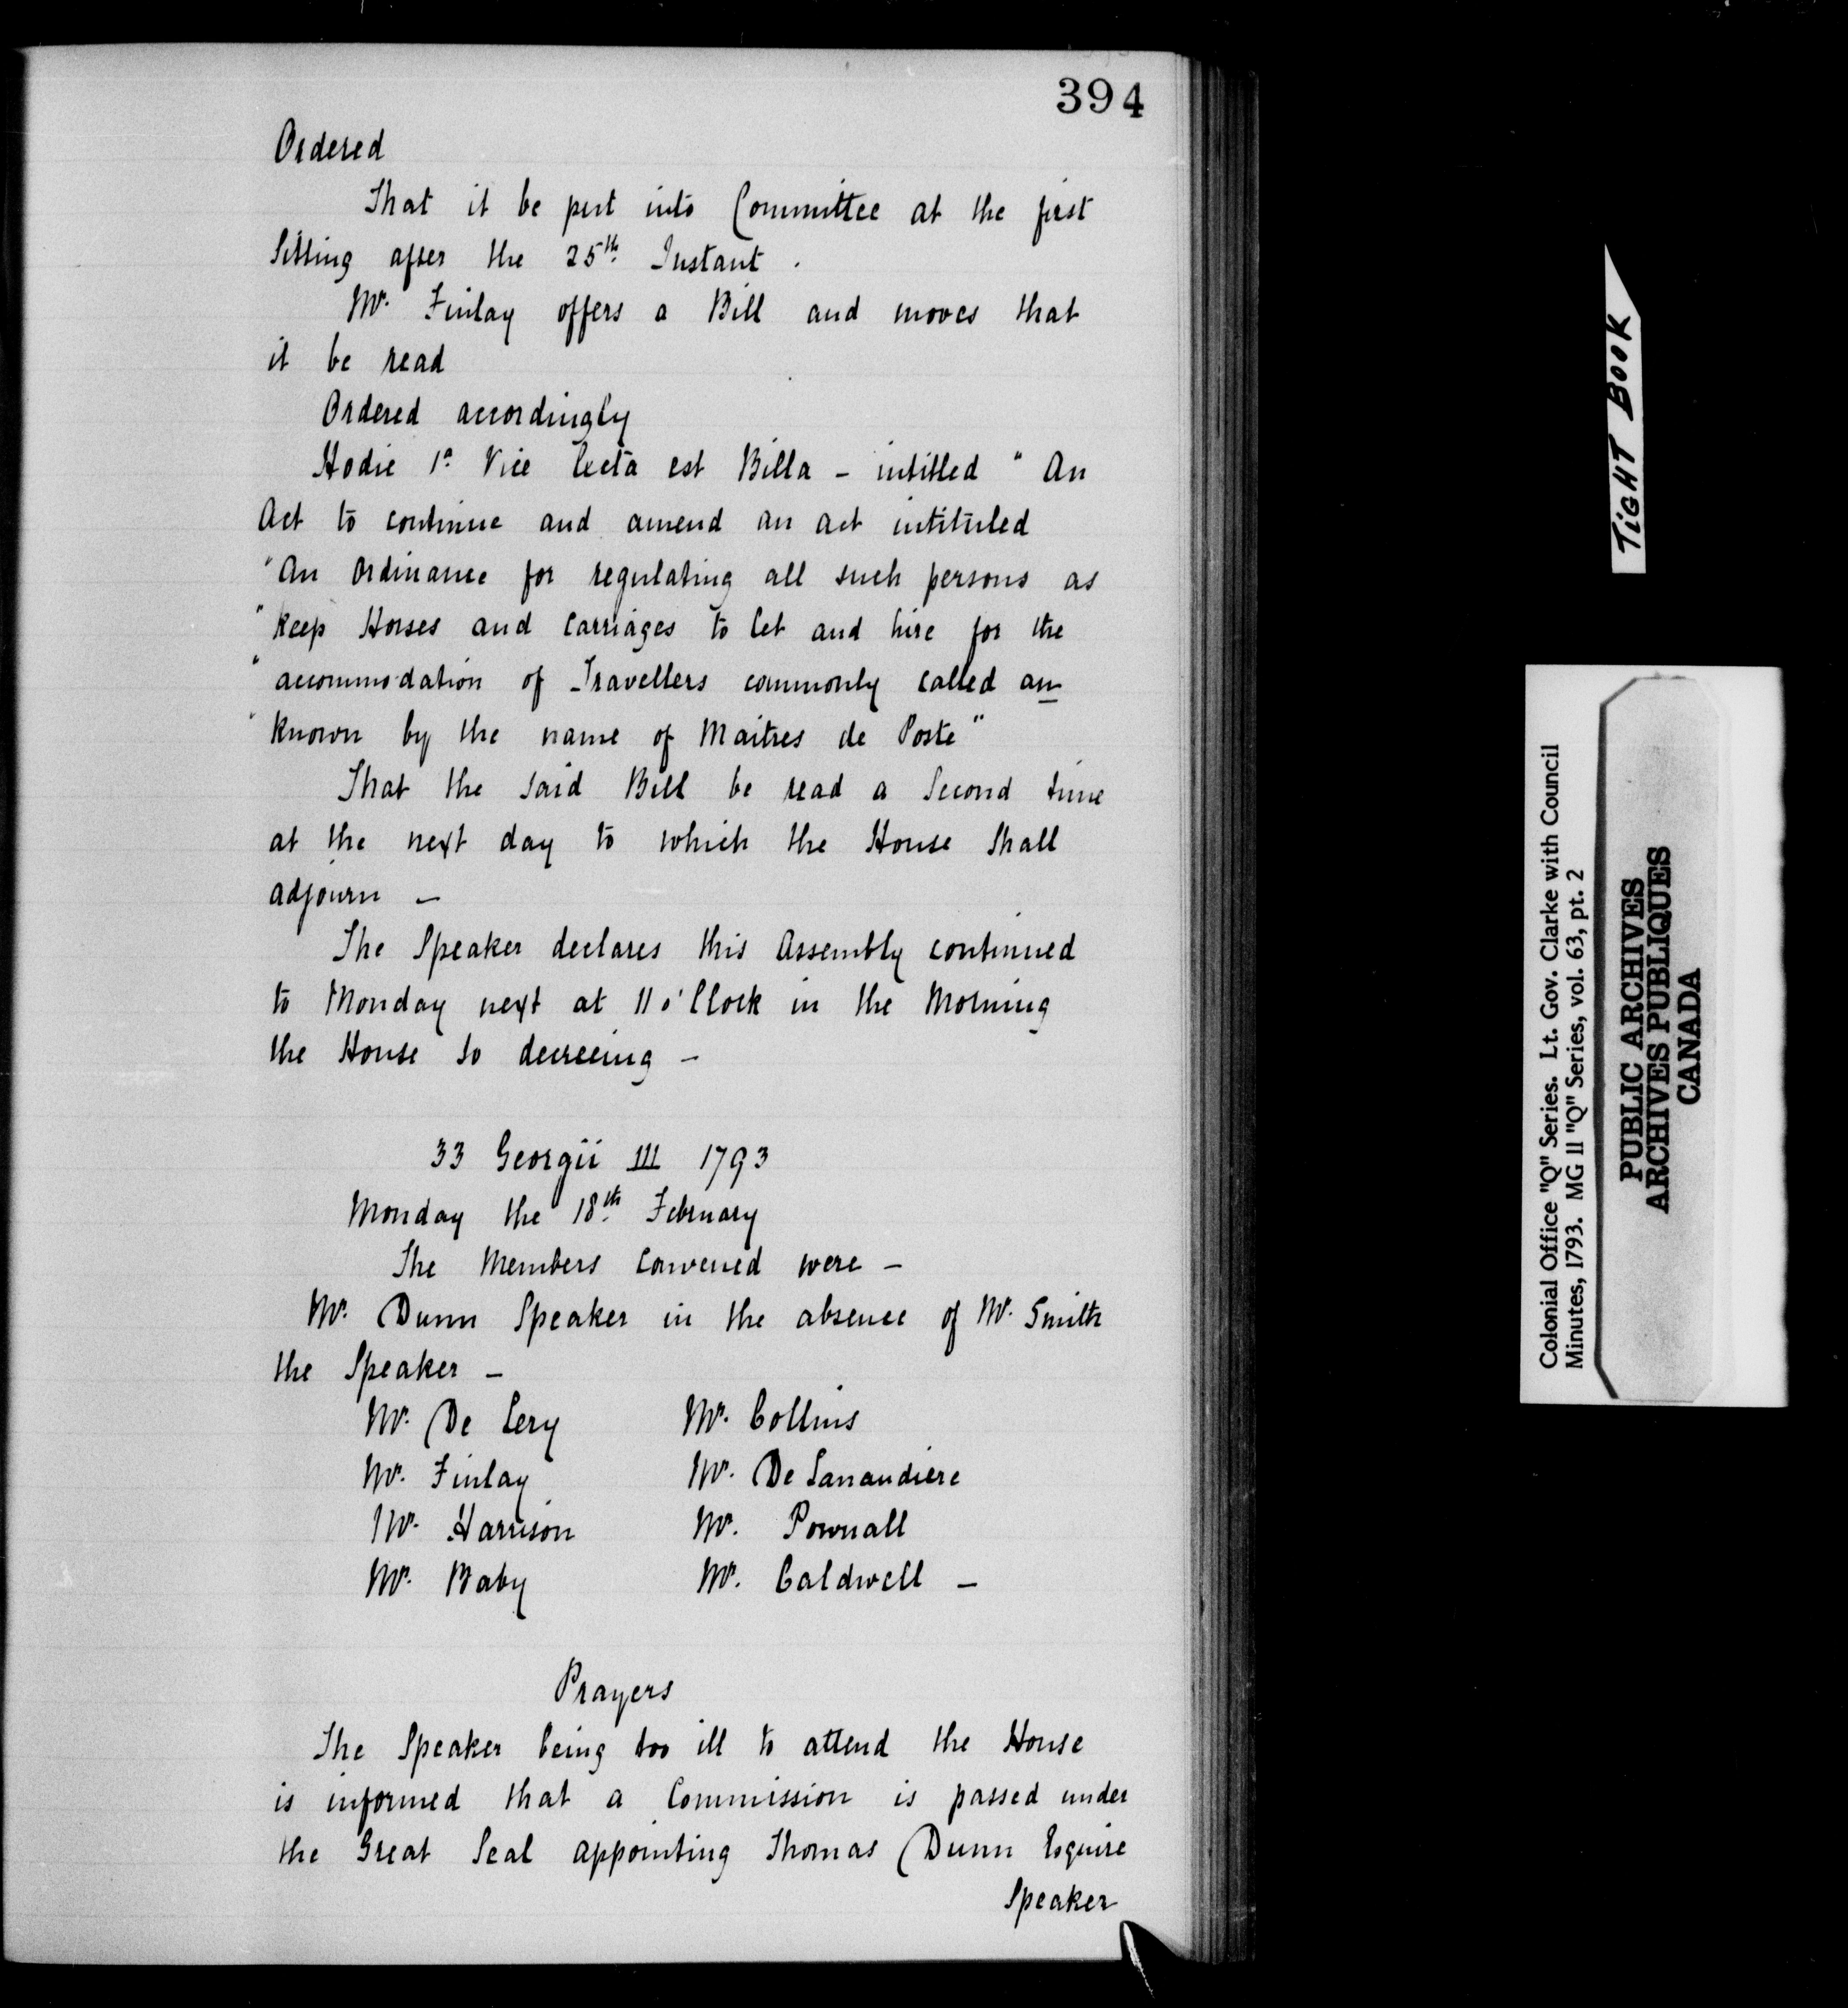 394
Ordered
That it be put into Committee at the first
Sitting after the 25th Instant.
Mr. Finlay offers a Bill and moves that
it be read
Ordered accordingly
Hodie 1a Vice lecta est Billa – intitled "An
Act to continue and amend an act intituled
"An Ordinance for regulating all such persons as
"keep Horses and Carriages to let and hire for the
"accommodation of Travellers commonly called an
"known by the name of Maitres de Poste"
That the said Bill be read a Second time
at the next day to which the House Shall
adjourn –
The Speaker declares this Assembly continued
to Monday next at 11 o'Clock in the Morning
the House so decreeing –
33 Georgii III 1793
Monday the 18th February
The Members Convened were –
Mr. Dunn Speaker in the absence of Mr. Smith
the Speaker –
Mr. De Lery Mr. Collins
Mr. Finlay Mr. De Lanaudiere
Mr. Harrison Mr. Pownall
Mr. Baby Mr. Caldwell –
Prayers
The Speaker being too ill to attend the House
is informed that a Commission is passed under
the Great Seal appointing Thomas Dunn Esquire
Speaker
TiGHT BOOK
Colonial Office "Q" Series. Lt. Gov. Clarke with Council
Minutes, 1793. MG 11 "Q" Series, vol. 63, pt. 2
PUBLIC ARCHIVES
ARCHIVES PUBLIQUES
CANADA